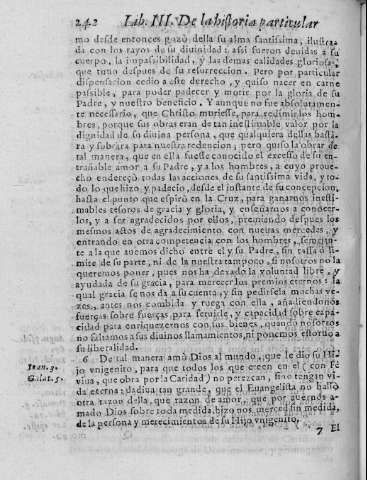 242 Lib. III. De la historia particular
mo desde entonces gozò della su alma santissima, ilustra-
da con los rayos de su diuinidad: assi fueron deuidas a su
cuerpo, la impassibilidad, y las demas calidades gloriosas,
que tuuo despues de su resurreccion. Pero por particular
dispensacion cedio a este derecho, y quiso nacer en carne
passible, para poder padecer y morir por la gloria de su
Padre, y nuestro beneficio. Y aunque no fue absolutamen-
te necessario, que Christo muriesse, para redimir los hom-
bres, porque sus obras eran de tan inestimable valor por la
dignidad de su diuina persona, que qualquiera dellas basta-
ra y sobrara para nuestra redencion; pero quiso la obrar de
tal manera, que en ella fuesse conocido el excesso de su en-
trañable amor a su Padre, y a los hombres, a cuyo proue-
cho endereçò todas las acciones de su santissima vida, y to-
do lo que hizo y padecio, desde el instante de su concepcion,
hasta el punto que espirò en la Cruz, para ganarnos inesti-
mables tesoros de gracia y gloria, y enseñarnos a conocer-
los, y a ser agradecidos por ellos, premiando despues los
mesmos actos de agradecimiento con nueuas mercedes, y
entrando en otra competencia con los hombres, semejan-
te a la que auemos dicho entre el y su Padre, sin tassa ò li-
mite de su parte, ni de la nuestra tampoco, si nosotros no la
queremos poner, pues nos ha dexado la voluntad libre, y
ayudada de su gracia, para merecer los premios eternos: la
qual gracia se nos da a su cuenta, y sin pedirsela muchas ve-
zes, antes nos combida y ruega con ella, añadiendonos
fuerças sobre fuerças para seruirle, y capacidad sobre capa-
cidad para enriquezernos con sus bienes, quando nosotros
no faltamos a sus diuinos llamamientos, ni ponemos estoruo a
su liberalidad.
6 De tal manera amò Dios al mundo, que le dio su Hi-
Ioan. 3. jo vnigenito, para que todos los que creen en el (con Fè
Galat. 5. viua, que obra por la Caridad) no perezcan, sino tengan vi-
da eterna: dadiua tan grande, que el Euangelista no hallò
otra razon della, que razon de amor, que por auernos a-
mado Dios sobre toda medida, hizo nos merced sin medida,
de la persona y merecimientos de su Hijo vnigenito.
7 El